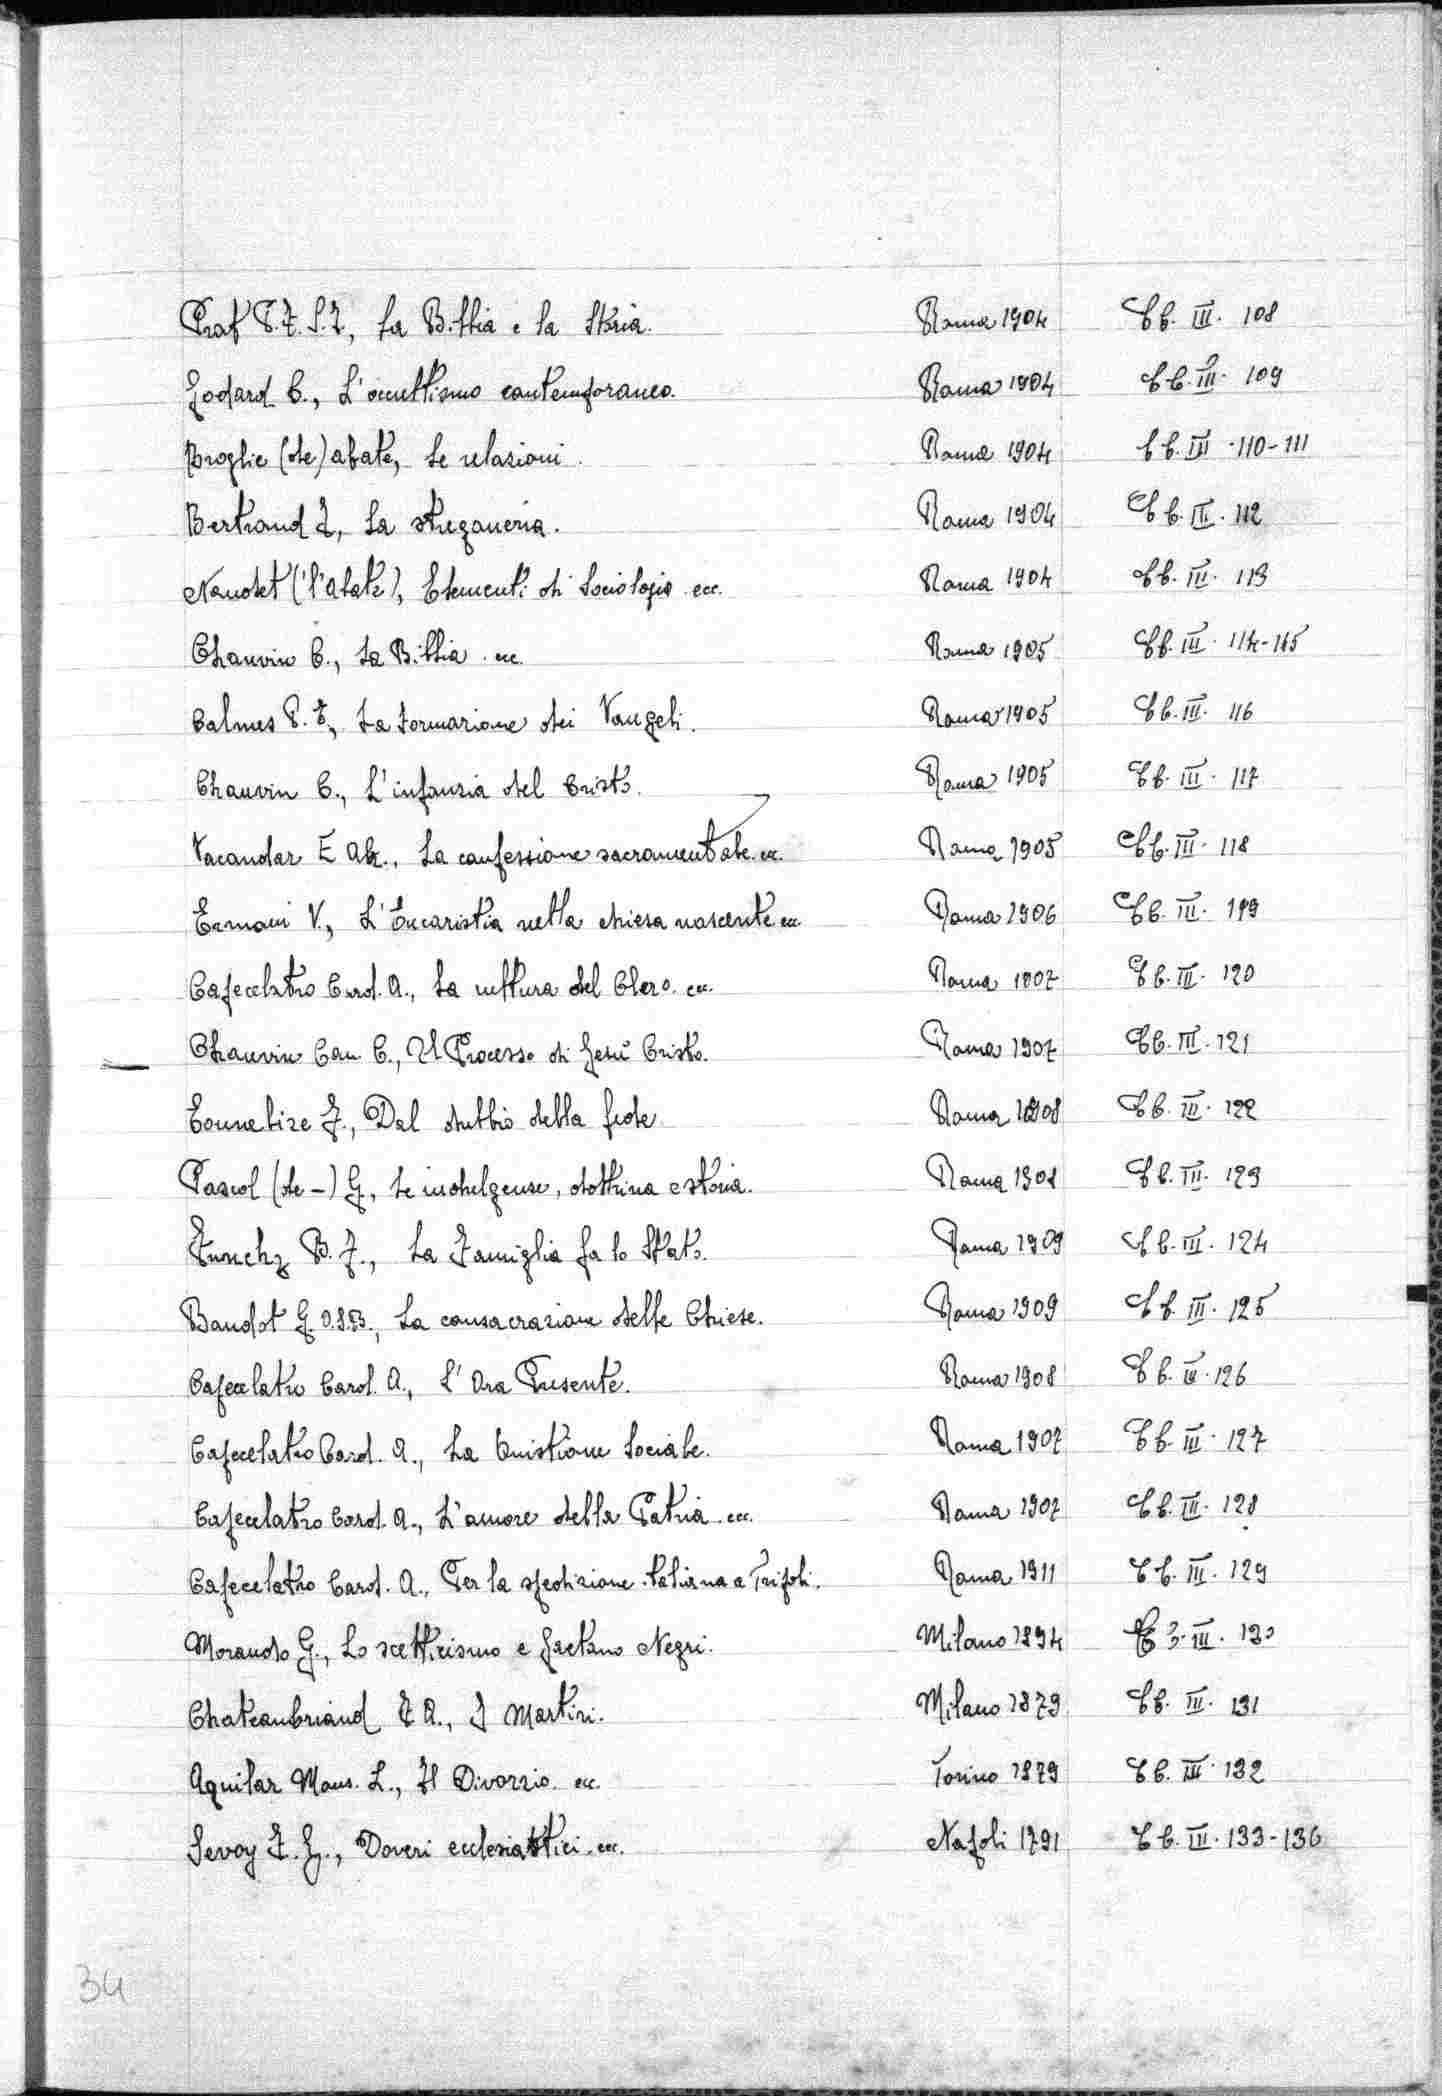 Prat P. F. S. J., La Bibbia e la Storia. Roma 1904 Cb. III. 108
Godard C., L'occultismo contemporaneo. Roma 1904 Cb. III. 109
Broglie (de) abate, Le relazioni. Roma 1904 Cb. III. 110-111
Bertrand I, La stregoneria. Roma 1904 Cb. III. 112
Naudet (l'abate), Elementi di Sociologia ecc. Roma 1904 Cb. III. 113
Chauvin C., La Bibbia ecc. Roma 1905 Cb. III. 114-115
Calmes P. T., La formazione dei Vangeli. Roma 1905 Cb. III. 116
Chauvin C., L'infanzia del Cristo. Roma 1905 Cb. III. 117
Vacandar E. Ab., La confessione sacramentale ec. Roma 1905 Cb. III. 118
Ermoni V., L'Eucaristia nella chiesa nascente ec. Roma 1906 Cb. III. 119
Capecelatro Card. A., La cultura del Clero. ecc. Roma 1907 Cb. III. 120
Chauvin Can. C., Il Processo di Gesù Cristo. Roma 1907 Cb. III. 121
Tournebize F., Dal dubbio della fede Roma 1908 Cb. III. 122
Pascal (de -) G., Le indulgenze, dottrina e storia. Roma 1908 Cb. III. 123
B. F., La Famiglia fa lo Stato. Roma 1909 Cb. III. 124
Baudot G. O.S.B., La consacrazione delle Chiese. Roma 1909 Cb. III. 125
Capecelatro Card. A., L'Ora Presente. Roma 1908 Cb. III. 126
Capecelatro Card. A., La Quistione Sociale. Roma 1907 Cb. III. 127
Capecelatro Card. A., L'amore della Patria ecc. Roma 1907 Cb. III. 128
Capecelatro Card. A., Per la spedizione italiana a Tripoli. Roma 1911 Cb. III. 129
Morando G., Lo scetticismo e Gaetano Negri. Milano 1894 III. 130
Chateaubriand F. A., I Martiri. Milano 1879 Cb. III. 131
Aquilar Mons. L., Il Divorzio. ecc. Torino 1879 Cb. III. 132
Sevoy F. G., Doveri ecclesiastici. ecc. Napoli 1791 Cb. III. 133-136
34